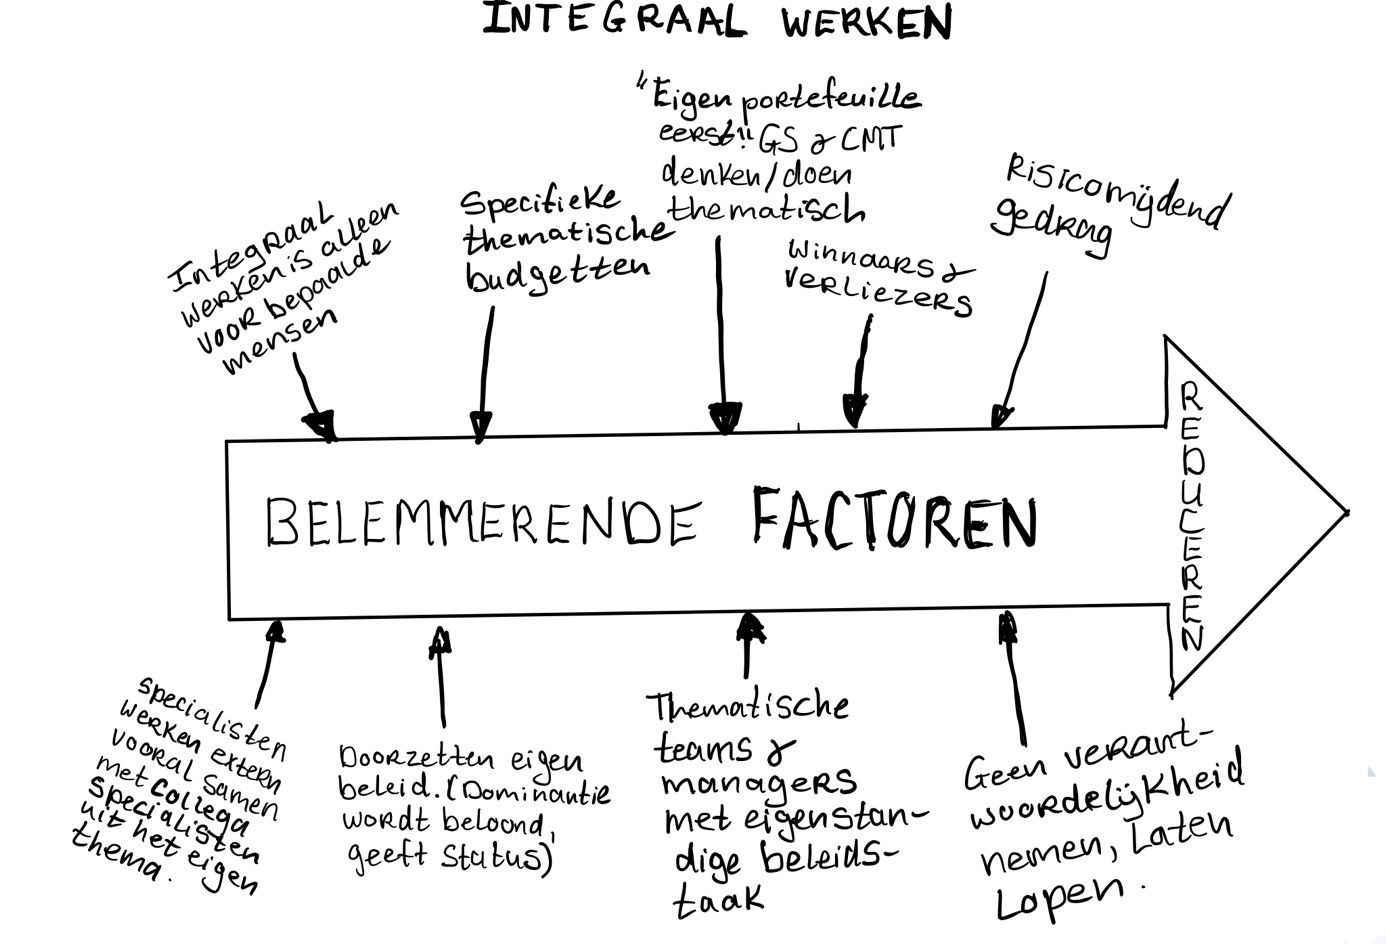 INTEGRAAL WERKEN
"Eigen portefeuille
eerst!! GS & CMT
denken/doen
thematisch
Integraal
werken is alleen
voor bepaalde
mensen
Specifieke
thematische
budgetten
Winnaars &
verliezers
Risicomijdend
gedrag
BELEMMERENDE FACTOREN
REDUCEREN
Specialisten
werken extern
vooral samen
met collega
specialisten
uit het eigen
thema.
Doorzetten eigen
beleid. (Dominantie
wordt beloond,
geeft status)
Thematische
teams &
managers
met eigenstan-
dige beleids-
taak
Geen verant-
woordelijkheid
nemen, Laten
Lopen.